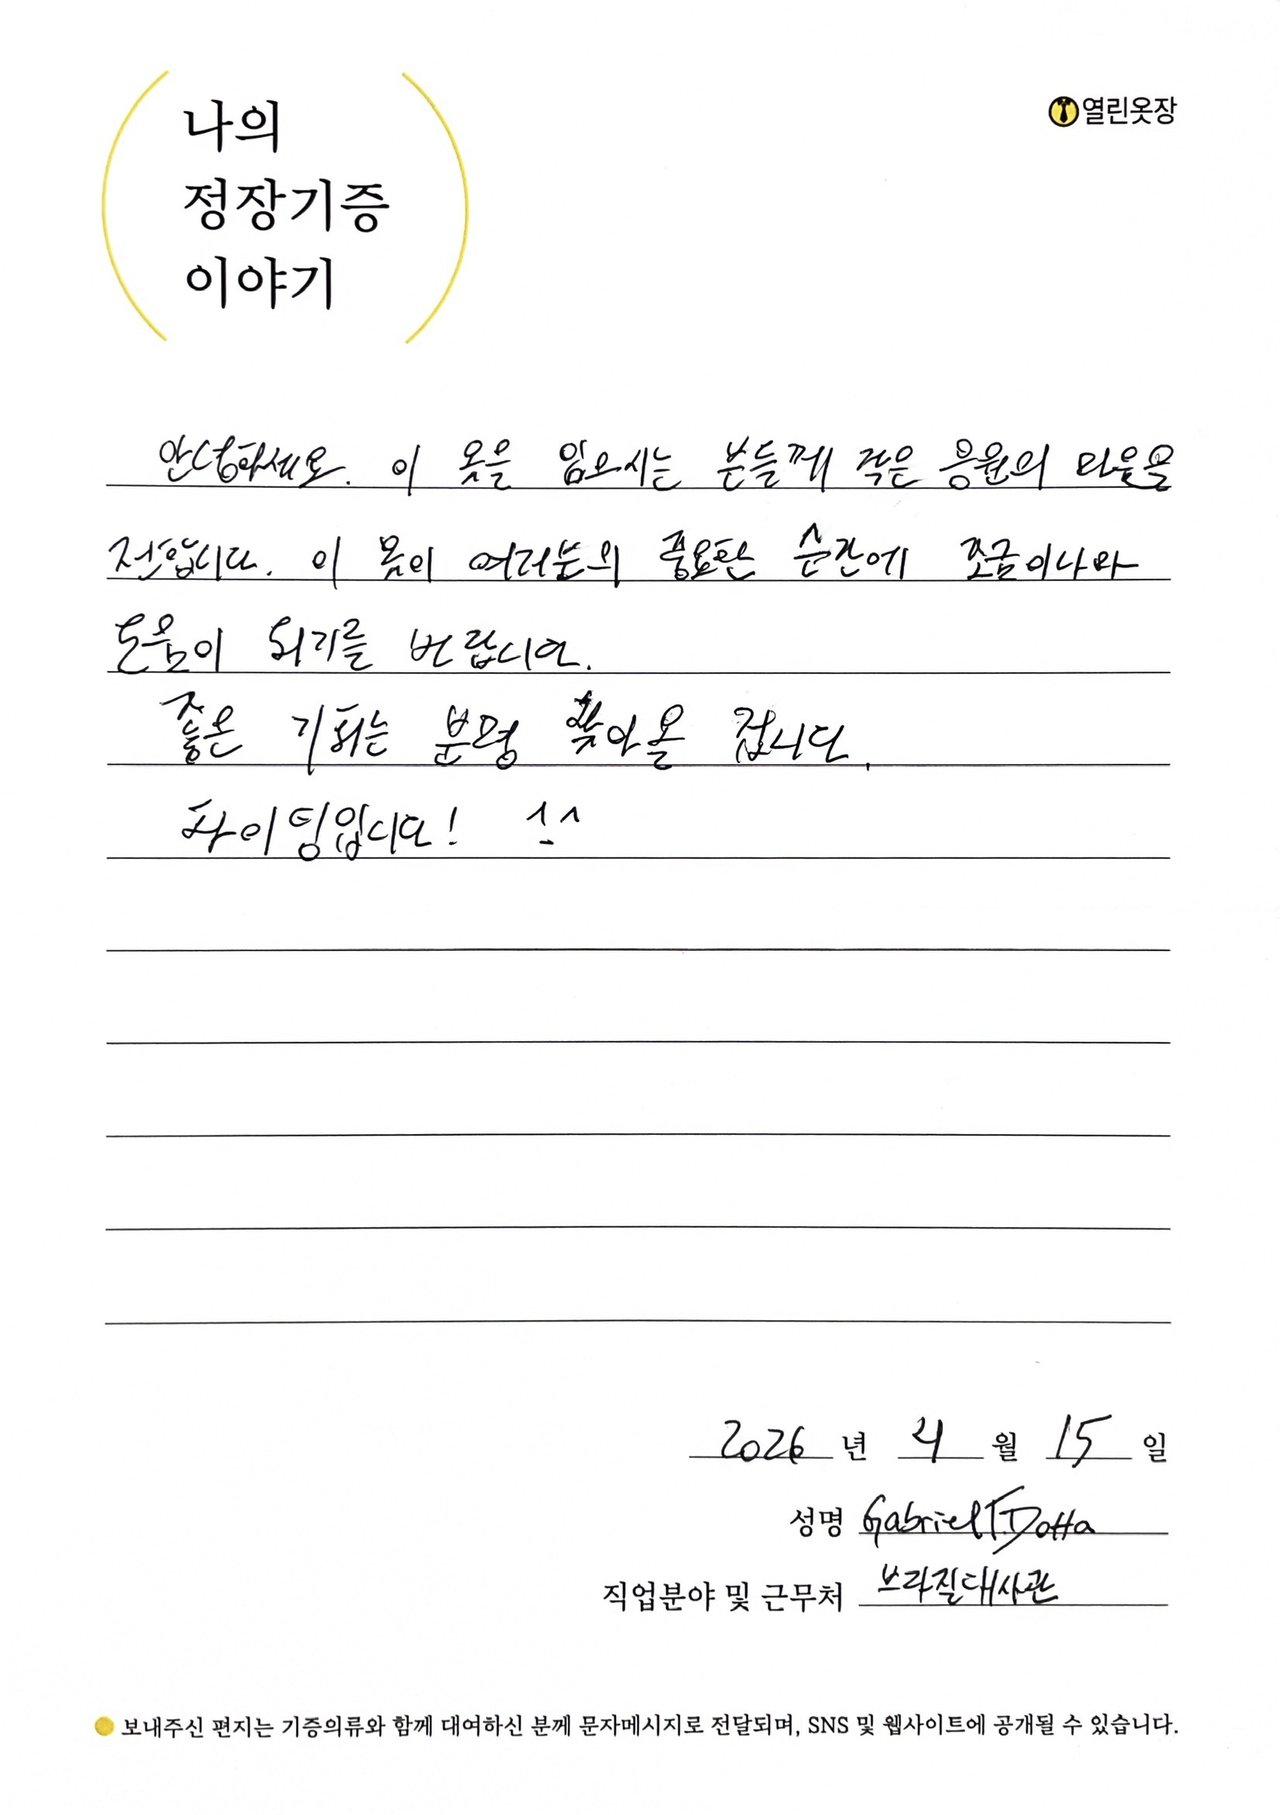 나의
정장기증
이야기
열린옷장
안녕하세요. 이 옷을 입으시는 분들께 작은 응원의 마음을
전합니다. 이 옷이 여러분의 중요한 순간에 조금이나마
도움이 되기를 바랍니다.
좋은 기회는 분명 찾아올 겁니다.
화이팅입니다! ^-^
2026 년 4 월 15 일
성명 Gabriel F. Dotta
직업분야 및 근무처 브라질대사관
보내주신 편지는 기증의류와 함께 대여하신 분께 문자메시지로 전달되며, SNS 및 웹사이트에 공개될 수 있습니다.